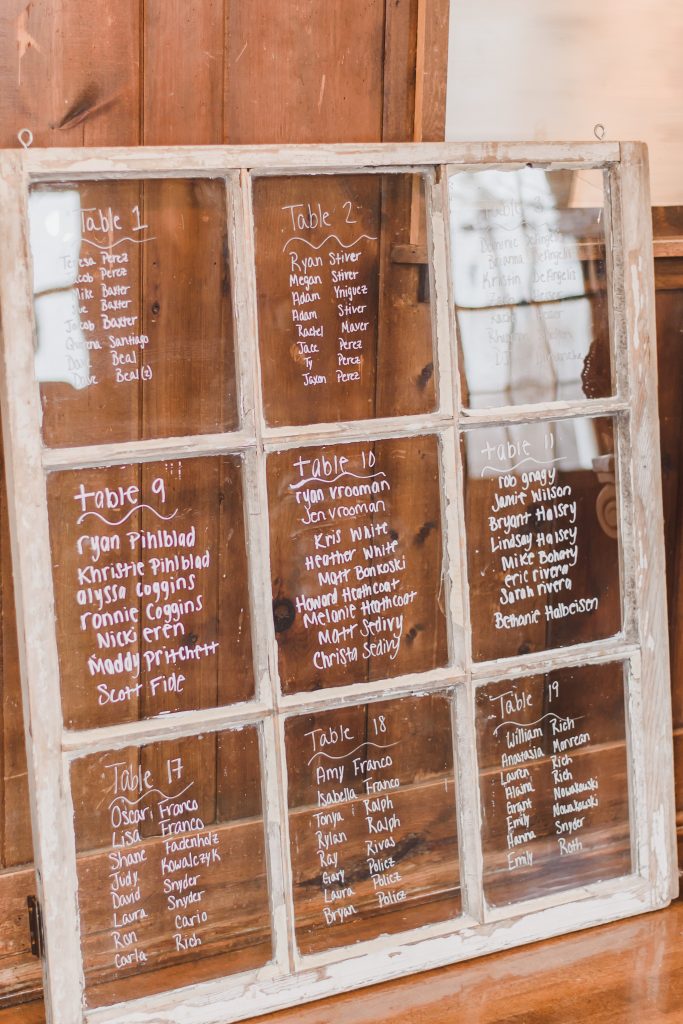 Table 1
Teresa Perez
Jacob Perez
Mike Baxter
Baxter
Jacob Baxter
Santiago
Beal
Dave Beal(z)
Table 2
Ryan Stiver
Megan Stiver
Adam Yniguez
Adam Stiver
Rachel Maver
Jace Perez
Ty Perez
Jaxon Perez
Table
Dominic DeAngelis
Brianna
Kristin DeAngelis
DJ
table 9
ryan Pihlblad
Khristie Pihlblad
alyssa Coggins
ronnie Coggins
Nick eren
Maddy Pritchett
Scott Fide
table 10
ryan vrooman
Jen vrooman
Kris White
Heather White
Matt Bonkoski
Howard Heathcoat
Melanie Heathcoat
Matt Sedivy
Christa Sedivy
table 11
rob gnagy
Jamie Wilson
Bryant Halsey
Lindsay Halsey
Mike Bohaty
eric rivera
Sarah rivera
Bethanie Halbeisen
Table 17
Oscar Franco
Lisa Franco
Shane Fadenholz
Judy Kowalczyk
David Snyder
Laura Snyder
Ron Cario
Carla Rich
Table 18
Amy Franco
Isabella Franco
Tonya Ralph
Rylan Ralph
Ray Rivas
Gary Policz
Laura Policz
Bryan Policz
Table 19
William Rich
Anastasia Monrean
Lauren Rich
Alaina Rich
Grant Nowakowski
Emily Nowakowski
Hanna Snyder
Emily Roth